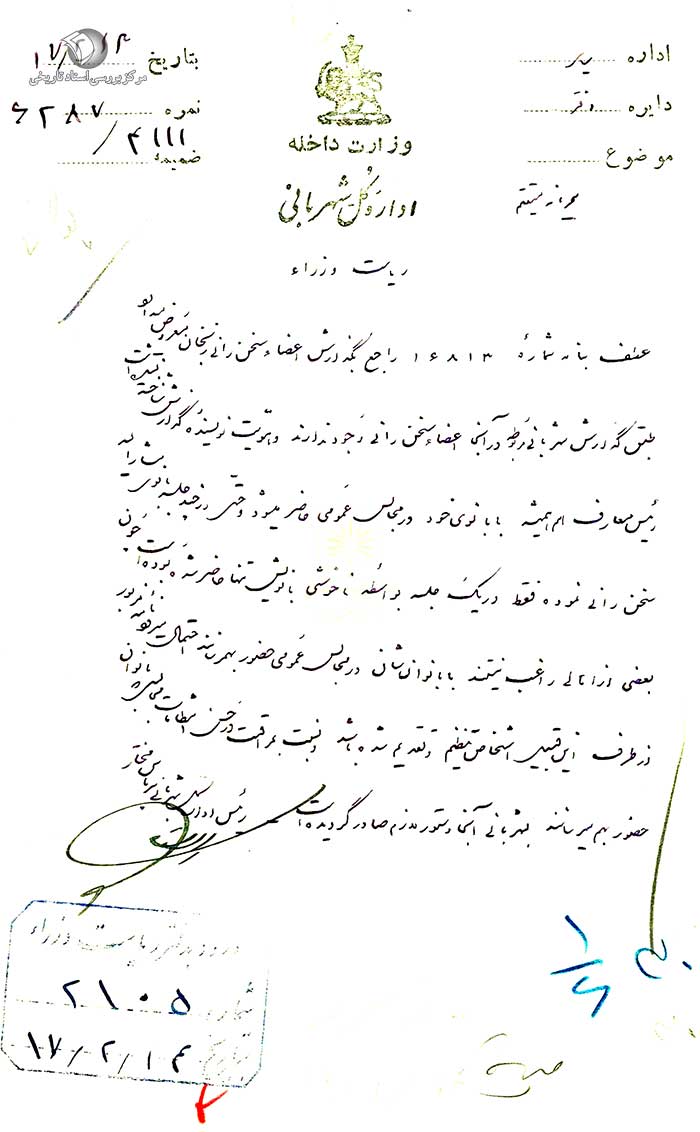 مرکز بررسی اسناد تاریخی
وزارت داخله
اداره کل شهربانی
اداره
دایره دفتر
موضوع
بتاریخ
نمره ۶۲۸۷
۴۱۱۱
ضمیمه
محرمانه مستقیم
ریاست وزراء
عطف بنامه شمارهٔ ۱۶۸۱۳ راجع بگذارش اعضاء سخن رانی زنجان معروض میدارد
طبق گذارش شهربانی مربوطه در آنجا اعضاء سخن رانی وجود ندارند و هویت نویسنده گذارش شناخته نشده است
رئیس معارف هم همیشه با بانوی خود در مجالس عمومی حاضر میشود و حتی در چند جلسه بانوی مشارالیه
سخن رانی نموده فقط در یک جلسه بواسطه ناخوشی بانویش تنها حاضر شده بوده است چون
بعضی از اهالی راغب نیستند با بانوان‌شان در مجالس عمومی حضور بهمرسانند احتمال میرود نامه مزبور
از طرف این قبیل اشخاص تنظیم و تقدیم شده باشد و نسبت بمراقبت در حسن انتظامات مجالسی که بانوان
حضور بهم میرسانند بشهربانی آنجا دستور لازم صادر گردیده است
رئیس اداره کل شهربانی پاس مختار
ورود بدفتر ریاست وزراء
شماره ۲۱۰۵
تاریخ ۱۷/۲/۱۴